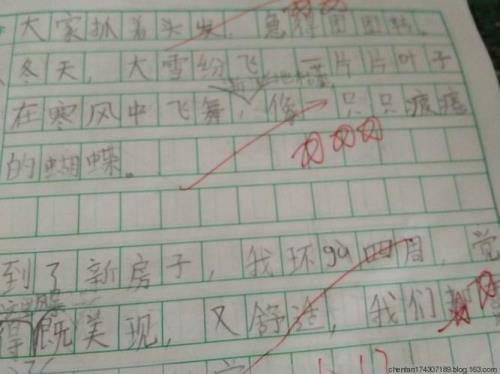 大家抓着头发，急得团团转。
冬天，大雪纷飞，一片片叶子
在寒风中飞舞，像一只只疲惫
的蝴蝶。
到了新房子，我环gù四周，觉
得既美现，又舒适，我们
chentan174307189.blog.163.com